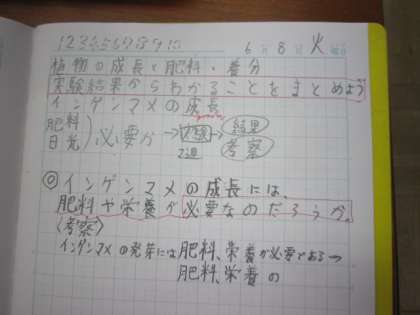 1 2 3 4 5 6 7 8 9 10
6月8日火曜日
植物の成長と肥料・養分
実験結果からわかることをまとめよう
インゲンマメの成長
肥料
日光)必要か→実験→結果
2週 考察
◎インゲンマメの成長には、
肥料や栄養が必要なのだろうか。
〈考察〉
インゲンマメの発芽には肥料、栄養が必要である→
肥料、栄養の